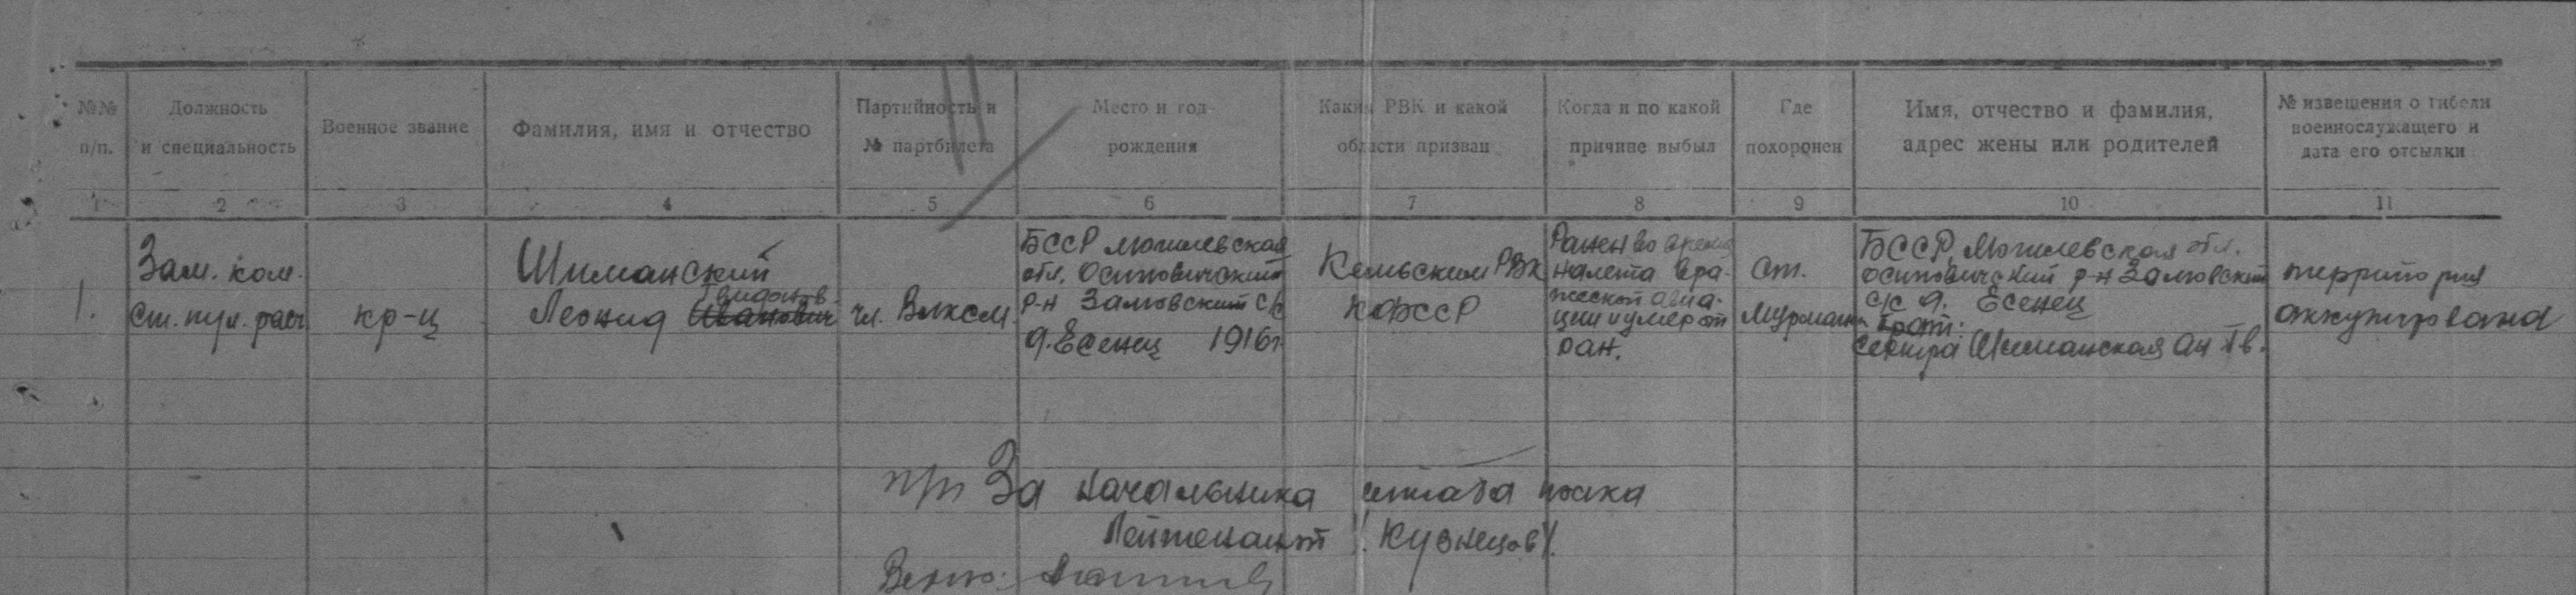 №№ п/п.
Должность и специальность
Военное звание
Фамилия, имя и отчество
Партийность и № партбилета
Место и год рождения
Каким РВК и какой области призван
Когда и по какой причине выбыл
Где похоронен
Имя, отчество и фамилия, адрес жены или родителей
№ извещения о гибели военнослужащего и дата его отсылки
1 2 3 4 5 6 7 8 9 10 11
1.
Зам. ком.
ст. пул. расч.
кр-ц
Шиманский
Леонид Иванович
чл. Влксм.
БССР Могилевская
обл. Осиповичский
р-н Замовский с/с
д. Есенец 1916 г.
Кемьским РВК
КФССР
Ранен во время
налета вра-
жеской авиа-
ции и умер от
ран.
ст.
Мурманск
БССР, Могилевская обл.
Осиповичский р-н Замовский
с/с д. Есенец
сестра Шиманская
территория
оккупирована
п/п За начальника штаба полка
Лейтенант /Кузнецов/.
Верно: